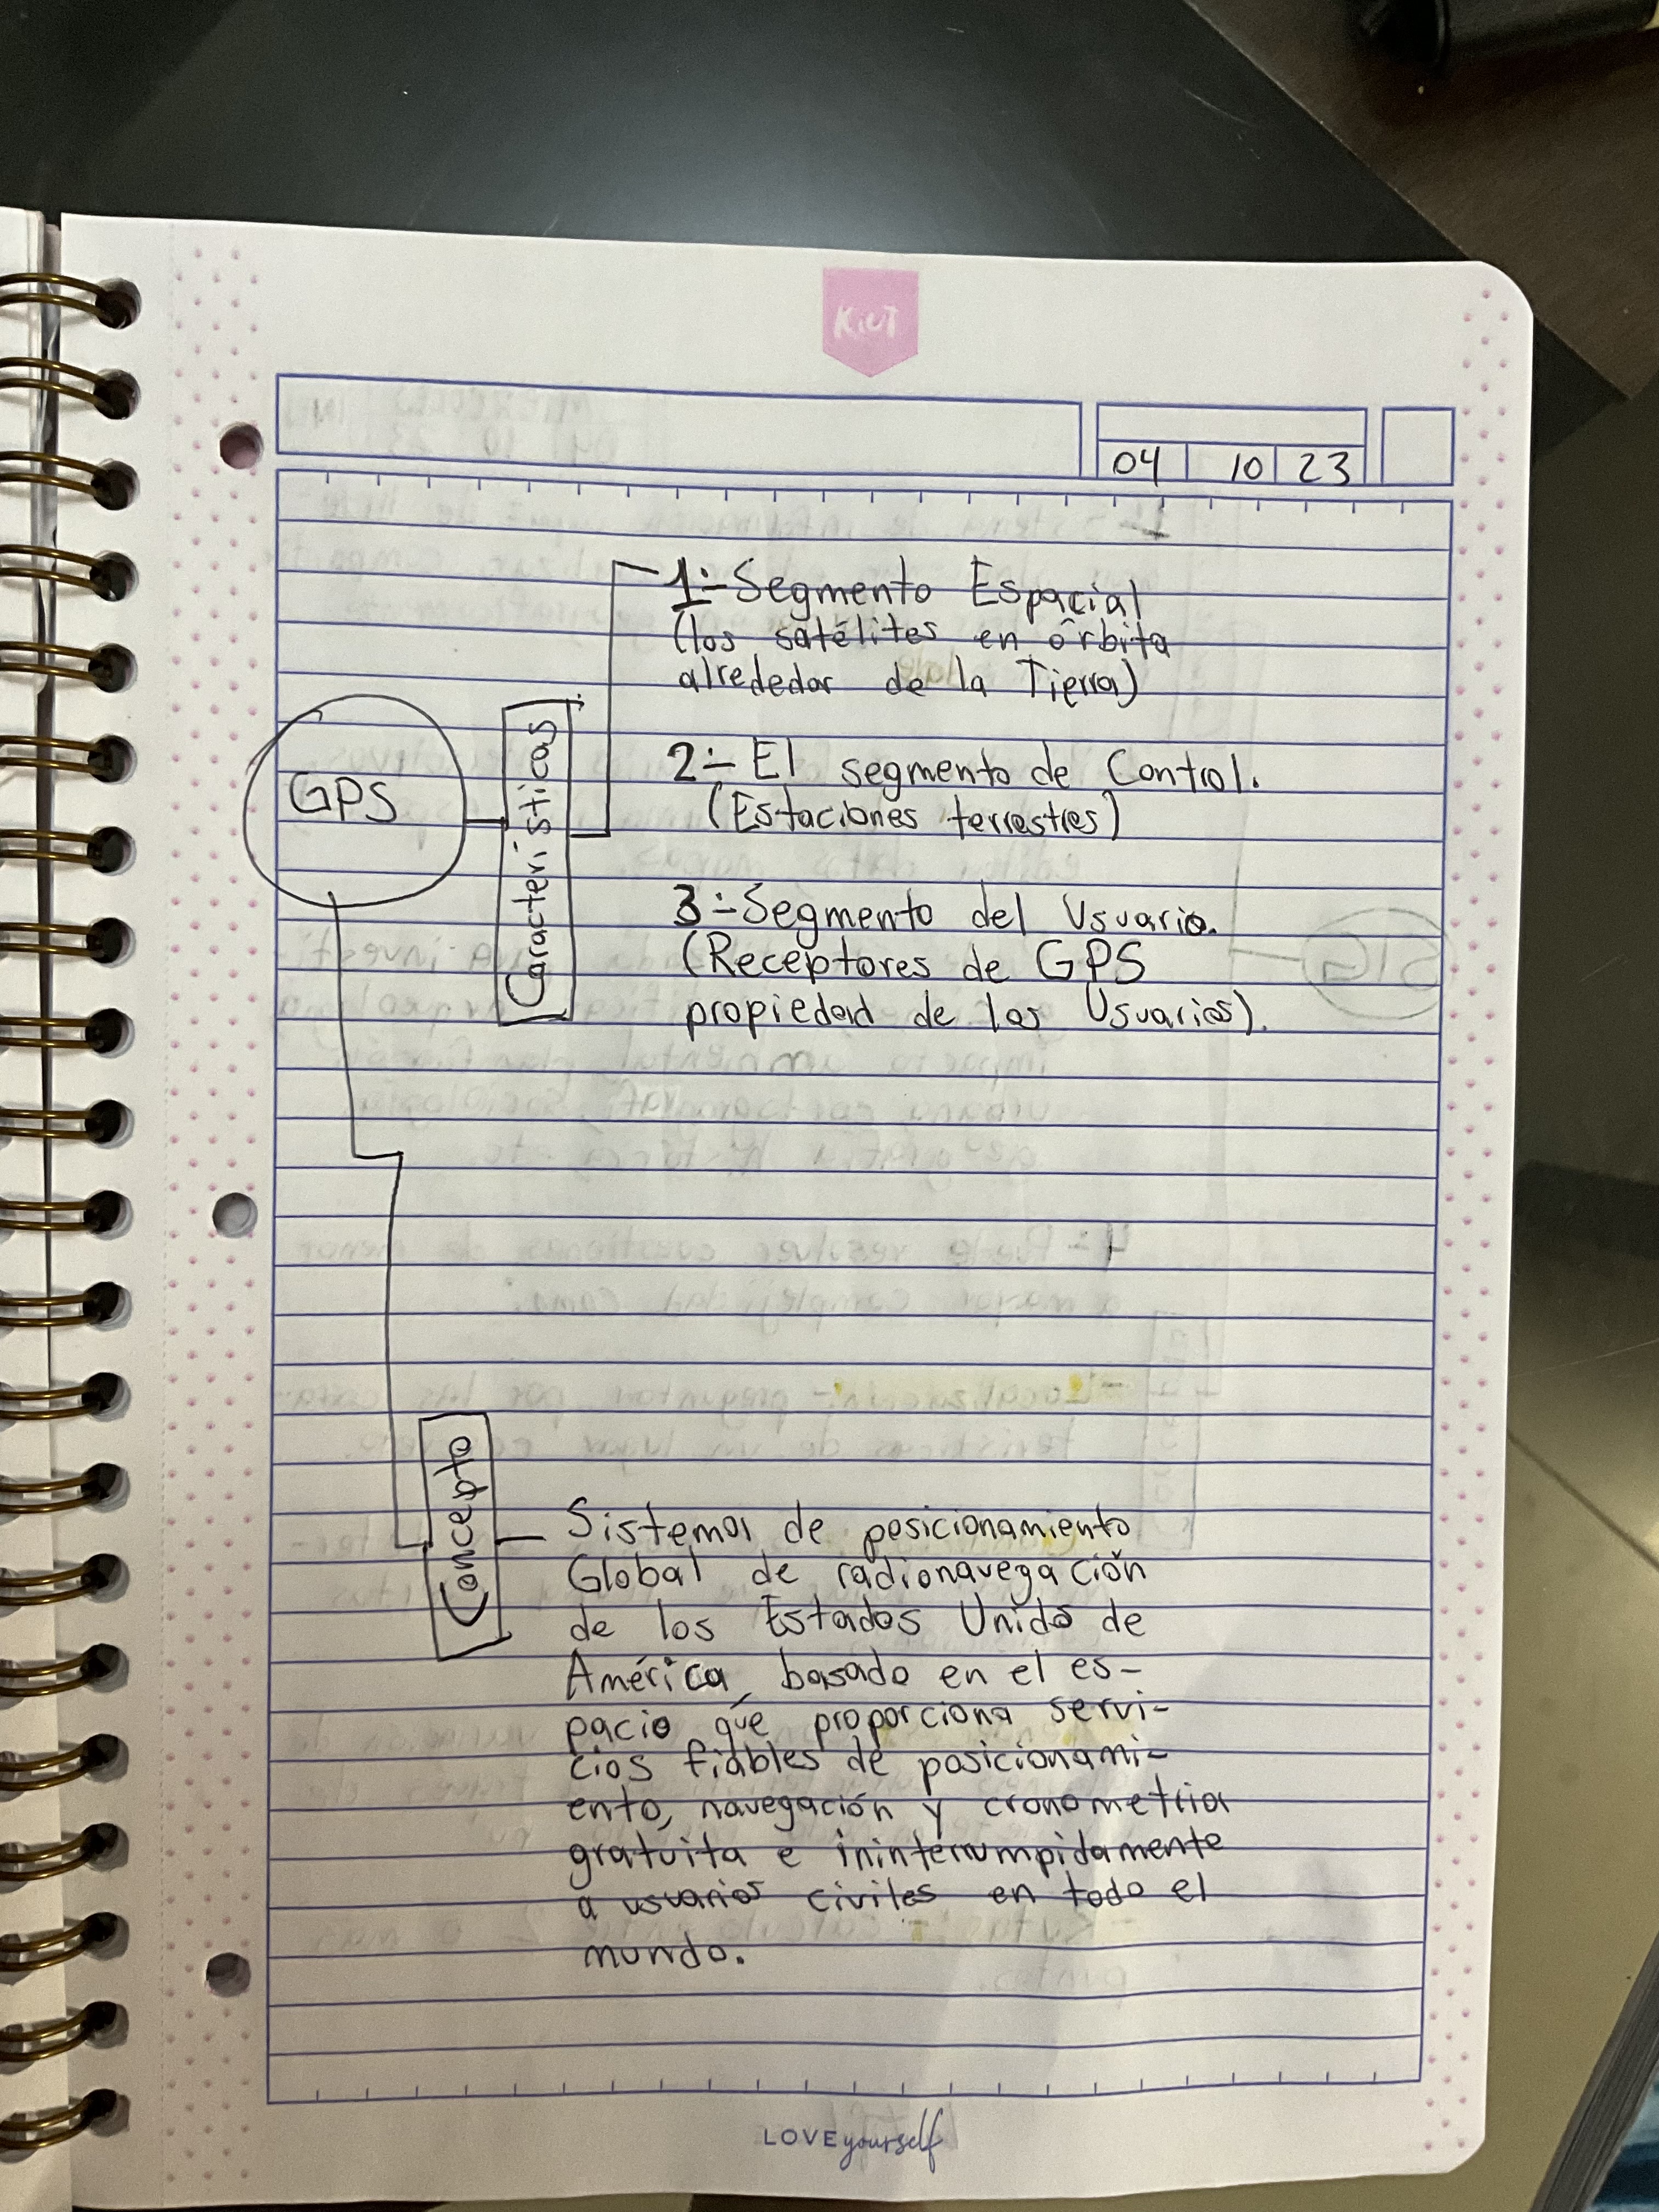 KIUT
04 10 23
1.- Segmento Espacial
(los satélites en órbita
alrededor de la Tierra)
2.- El segmento de Control.
(Estaciones terrestres)
GPS
Características
3.- Segmento del Usuario.
(Receptores de GPS
propiedad de los Usuarios).
Concepto
Sistema de posicionamiento
Global de radionavegación
de los Estados Unidos de
América, basado en el es-
pacio que proporciona servi-
cios fiables de posicionami-
ento, navegación y cronometria
gratuita e ininterrumpidamente
a usuarios civiles en todo el
mundo.
LOVE yourself